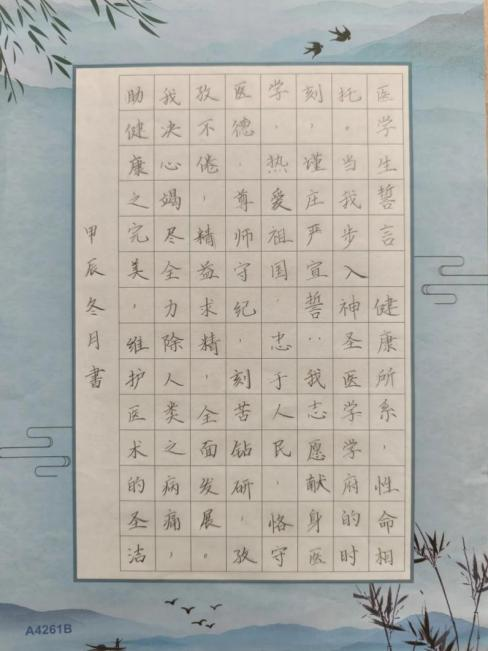 医学生誓言 健康所系，性命相
托。当我步入神圣医学学府的时
刻，谨庄严宣誓：我志愿献身医
学，热爱祖国，忠于人民，恪守
医德，尊师守纪，刻苦钻研，孜
孜不倦，精益求精，全面发展。
我决心竭尽全力除人类之病痛，
助健康之完美，维护医术的圣洁
甲辰冬月書
A4261B